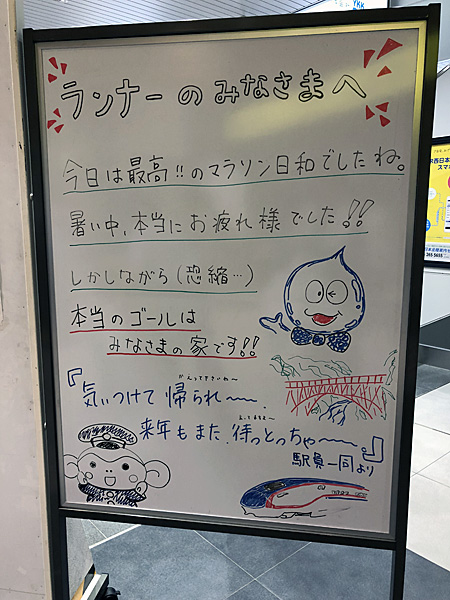 YKK
ランナーのみなさまへ
今日は最高!!のマラソン日和でしたね。
暑い中、本当にお疲れ様でした!!
しかしながら(恐縮…)
本当のゴールは
みなさまの家です!!
『気いつけて帰られ〜〜.
来年もまた、待っとっちゃ〜〜』
駅員一同より
西日本
スマ